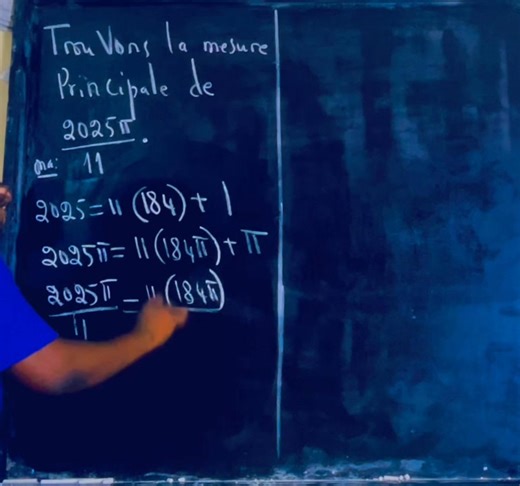 Trouvons la mesure
Principale de
2025π/11.
ma:
2025 = 11 (184) + 1
2025π = 11 (184π) + π
2025π/11 = 11 (184π)